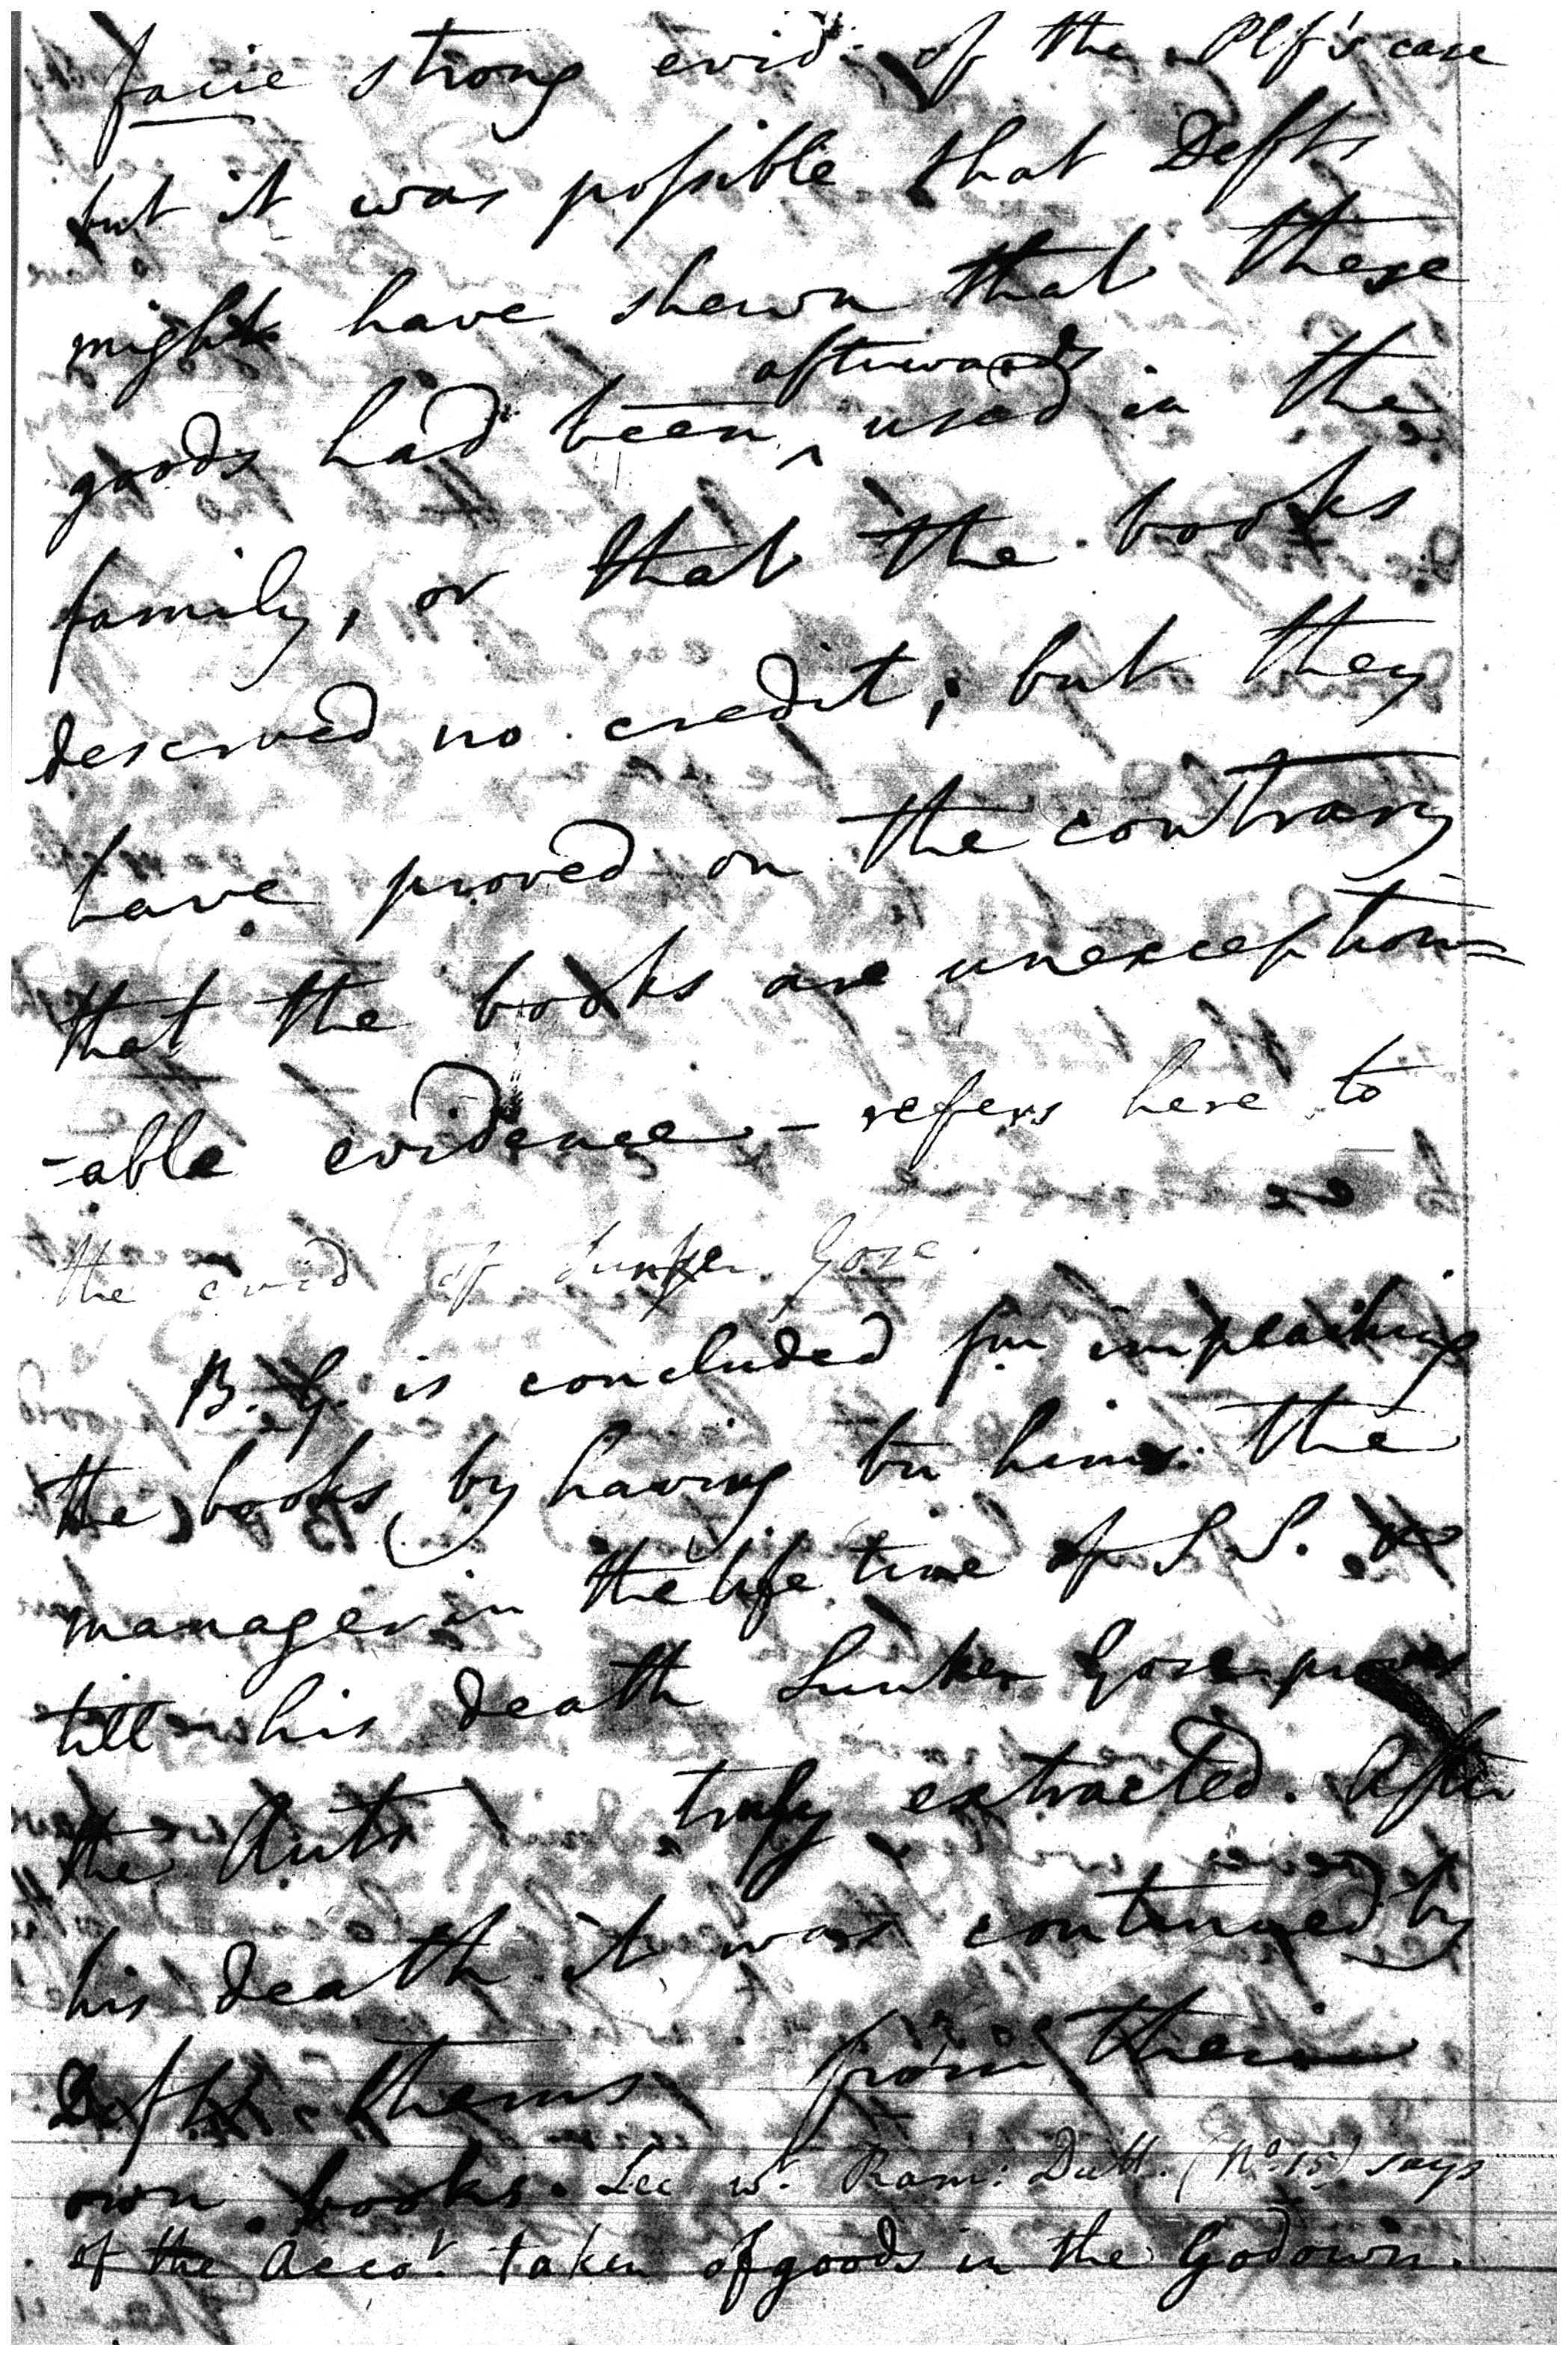 facie strong evid. of the Plf's case
but it was possible that Defts
might have shewn that these
goods had been afterwards used in the
family, or that the books
deserved no credit; but they
have proved on the contrary
that the books are unexception=
=able evidence - refers here to
the evid of Sunker Gose.
B. G. is concluded fm impeaching
the books by having bn hims. the
manager in the life time of S. S. &
till his death Sunker Gose proves
the Ants truly extracted. After
his death it was continued by
Defts thems from their
own books. See wt. Ram: Dutt. (No. 15) says
of the Accot. taken of goods in the Godown.